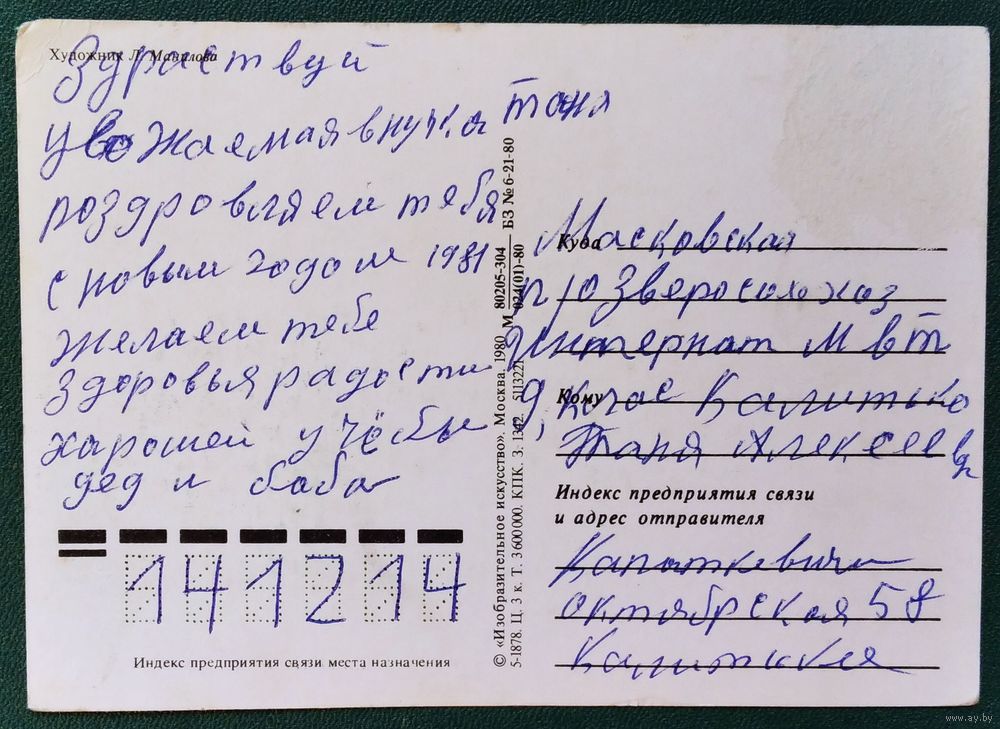 Художник Л. Манилова
Здраствуй
уважаемая внучка таня
поздровляем тебя
с новым годом 1981
желаем тебе
здоровья радости
харошей учёбы
дед и баба
141214
Индекс предприятия связи места назначения
© «Изобразительное искусство». Москва. 1980
5-1878. Ц. 3 к. Т. 3 600 000. КПК. З. 1342. 5113221
М 80205-304 БЗ № 6-21-80
024(01)-80
Куда Масковская
п/о Зверосовхоз
интернат М в т
Кому Калитько
Таня Алексеев
Индекс предприятия связи
и адрес отправителя
Капаткевичи
октябрская 58
www.ay.by